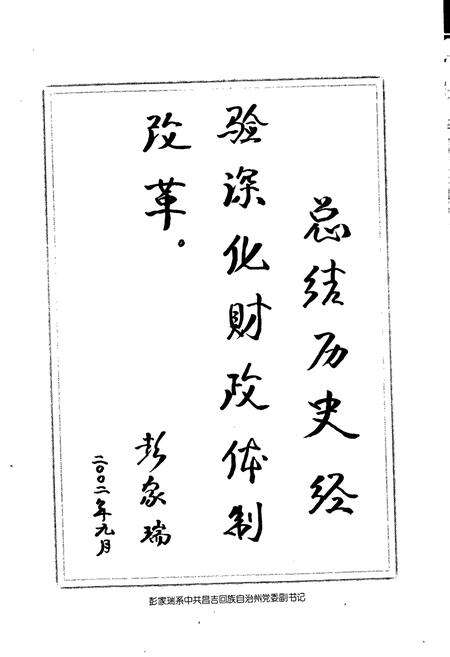 总结历史经
验深化财政体制
改革。
彭家瑞
二〇〇二年九月
彭家瑞系中共昌吉回族自治州党委副书记